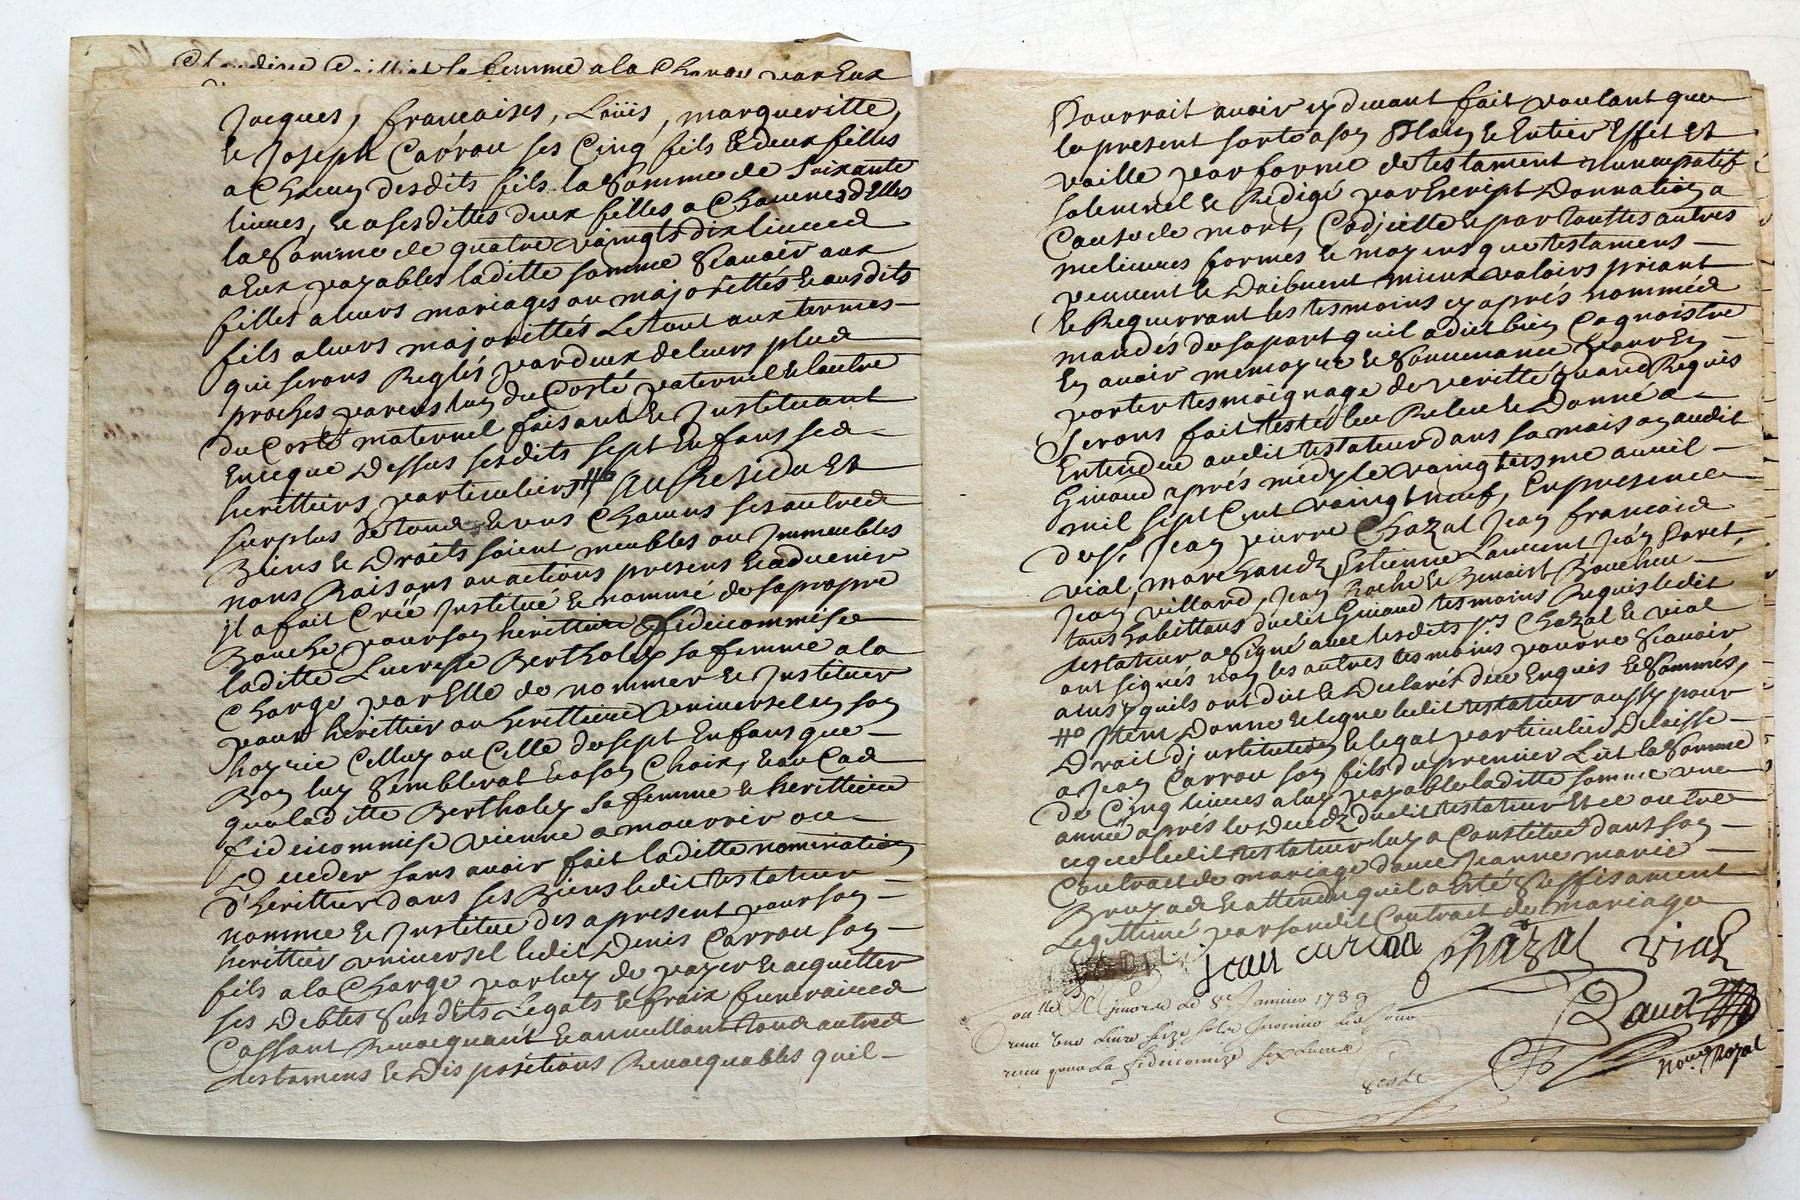 Claudine la femme a la Charge par Eux
Jacques, francoises, Loüis, margueritte,
Et Joseph Carrou ses Cinq fils Et deux filles
a Chacun desdits fils la Somme de Soixante
livres, Et a sesdittes deux filles a Chacunes d'Elles
la Somme de quatre vaingts dix livres
a Eux payables laditte somme Scauoir aux
filles a leurs mariages ou majorittés Et ausdits
fils a leurs majorittés Le tout aux termes
qui serons Reglés par deux de leurs plus
proches parens lun du Costé paternel Et lautre
du Costé maternel faisant Et Jnstituant
En ce que Dessus sesdits sept Enfans ses
herittiers particuliers, Au Residu Et
surplus de tous Et uns Chacuns ses autres
Biens Et Droits soient meubles ou Jmmeubles
noms Raisons ou actions presens Et aduenir
jl a fait Creé Jnstitué Et nommé de sa propre
Bouche pour son herittiere fideicommise
laditte Lucresse Bertholey sa femme a la
Charge par Elle de nommer Et Jnstituer
pour herittier ou herittiere vniversel en son
hoyrie Celluy ou Celle de sept Enfans que
Bon luy Semblerat Et a son Choix, Et au Cas
que laditte Bertholey sa femme Et herittiere
fideicommise vienne a mourrir ou
Deceder sans avoir fait laditte nomination
d'herittier dans ses Biens ledit testateur
nomme Et Jnstitue des a present pour son
herittier vniversel ledit Denis Carrou son
fils a la Charge par luy de payer Et acquitter
ses Debtes Susdits Legats Et fraix funeraires
Cassant Revocquant Et annullant tous autres
testamens Et Dispositions Revocquables quil
Pourrait auoir cy deuant fait voulant que
le present sorte a son Plain Et Entier Effet Et
vaille par forme de testament nuncupatif
solemnel Et Redigé par Escript Donnation a
Cause de mort, Codjcille Et par touttes autres
melieures formes Et moyens que testamens
peuvent Et Doibuent mieux valoirs priant
Et Requerrant les tesmoins cy aprés nommés
mandés de sa part quil a dit bien Cognoistre
En auoir memoyre Et Souuenance Pour En
porter tesmoignage de veritté quand Requis
Serons fait testé leu Releu Et Donné a
Entendre audit testateur dans sa maison audit
Giuaud aprés midy le vaingtiesme auril
mil sept Cent vaingt neuf, En presence
de Sr. Jean pierre Chazal Jean francois
vial marchands, Estienne Laurent Jean Poret,
Jean Villard, Jean Roche Et Benoist Boucheu
tous habittans dudit Giuaud tesmoins Requis ledit
testateur a Signé auec lesdits srs Chazal Et vial
ont signés non les autres tesmoins pour ne Scauoir
ainsy quils ont dit Et Declarés de ce Enquis Et Sommés,
Jtem Donne Et legue ledit testateur aussy pour
Droit d'jnstitution Et legat particulier Delaisse
a Jean Carrou son fils du premier Lict la Somme
de Cinq liures a luy payable laditte somme vne
année aprés le Decedz dudit testateur Et ce outre
ce que ledit testateur luy a Constitué dans son
Contract de mariage dauec Jeanne marie
Bruyas Et attendu quil a Esté Suffisament
Legittimé par sondit Contract de mariage
jean carrou Chazal vial
Le 8e 1739
reçu une Livre Seize Sols
reçu pour La fideicomise six Livres
Nore Royal